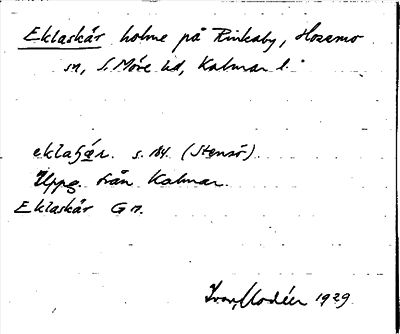 Eklaskär holme på Rinkaby, Hossmo
sn, S. Möre hd, Kalmar l.
s. 184. (Stensö)
Uppg. från Kalmar.
Eklaskär G n.
Ivar Modéer 1929